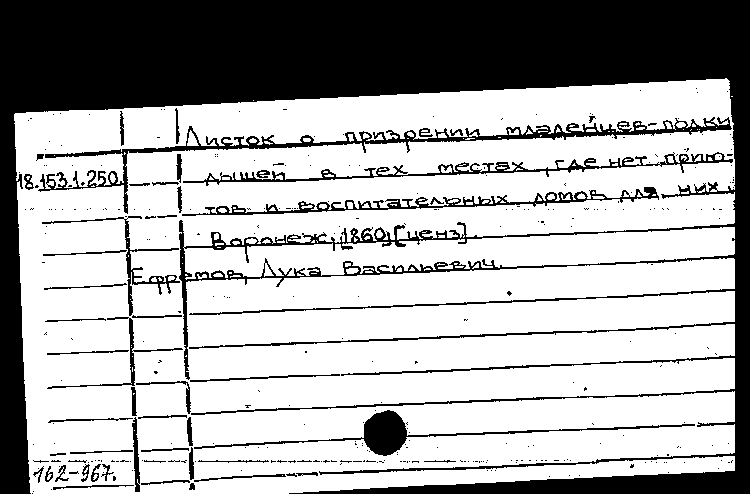 Листок о призрении младенцев-подки
18.153.1.250. дышей в тех местах, где нет прию-
тов и воспитательных домов для них.
Воронеж, 1860, [ценз].
Ефремов, Лука Васильевич.
162-967.